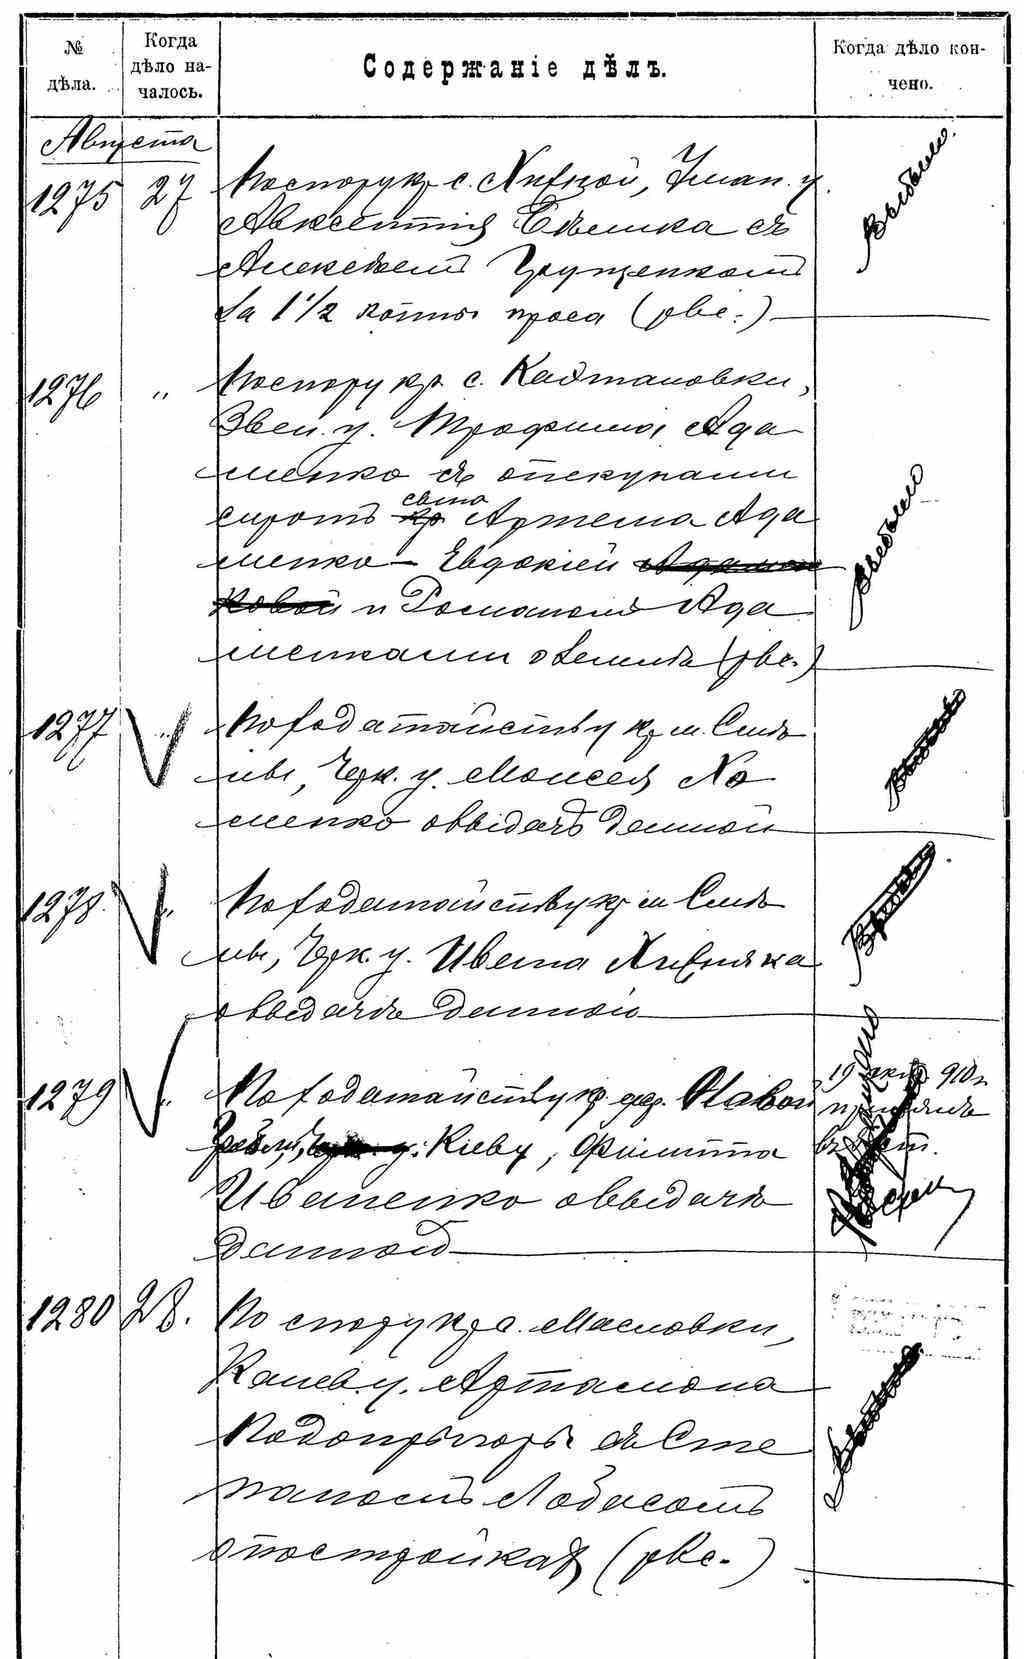 № дѣла.
Когда дѣло на-
чалось.
Содержаніе дѣлъ.
Когда дѣло кон-
чено.
Августа
1275 27 По спору кр. с. Хижной, Уман. у.
Авксентія Бѣлика съ
Алексѣемъ Грущенкомъ
за 1 1/2 копны проса (рвс.)
Выбыло.
1276 " По спору кр. с. Кайтановки,
Звен. у. Трофима Ада
менко съ опекунами
сиротъ кр. Артема Ада
менко - Евдокіей
и Романомъ Ада
менками о землѣ (рвс.)
Выбыло
1277 " По ходатайству кр. м. Смѣ
лы, Черк. у. Моисея Хо
менко о выдачѣ данной
1278 " По ходатайству кр. м. Смѣ
лы, Черк. у. Ивана Хивняка
о выдачѣ данной
1279 " По ходатайству кр. дер.
Кіеву, Филиппа
Иваненко о выдачѣ
данной
19 окт. 910 г.
1280 28. По спору кр. с. Масловки,
Канев. у. Артамона
Подопрыгоры съ Сте
паномъ Лобасомъ
о постройкахъ (рвс.)